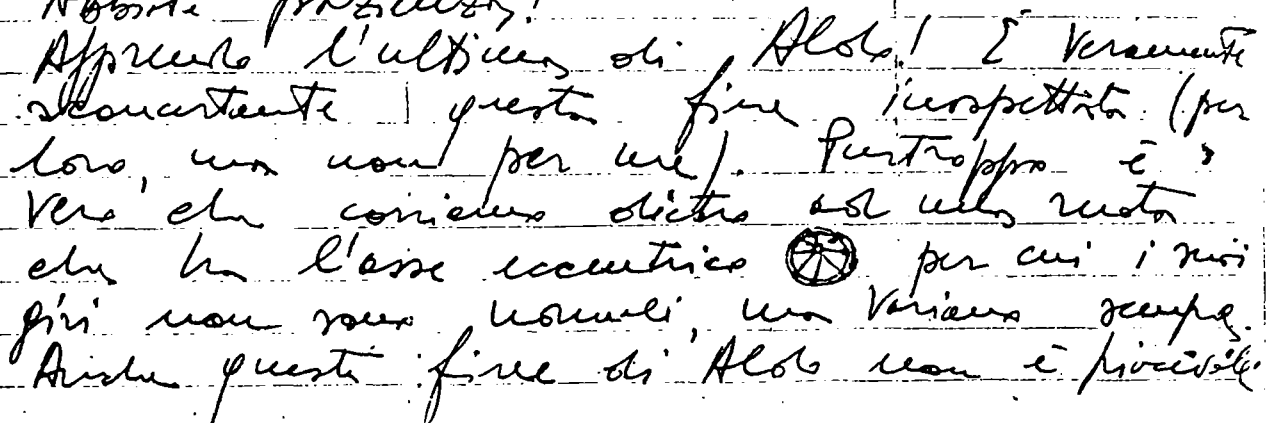 Abbiate pazienza!
Apprendo l'ultima di Aldo! È veramente
sconcertante questa fine inaspettata (per
loro, ma non per me). Purtroppo è
vero che corriamo dietro ad una ruota
che ha l'asse eccentrico per cui i suoi
giri non sono normali, ma variano sempre.
Anche questa fine di Aldo non è piacevole